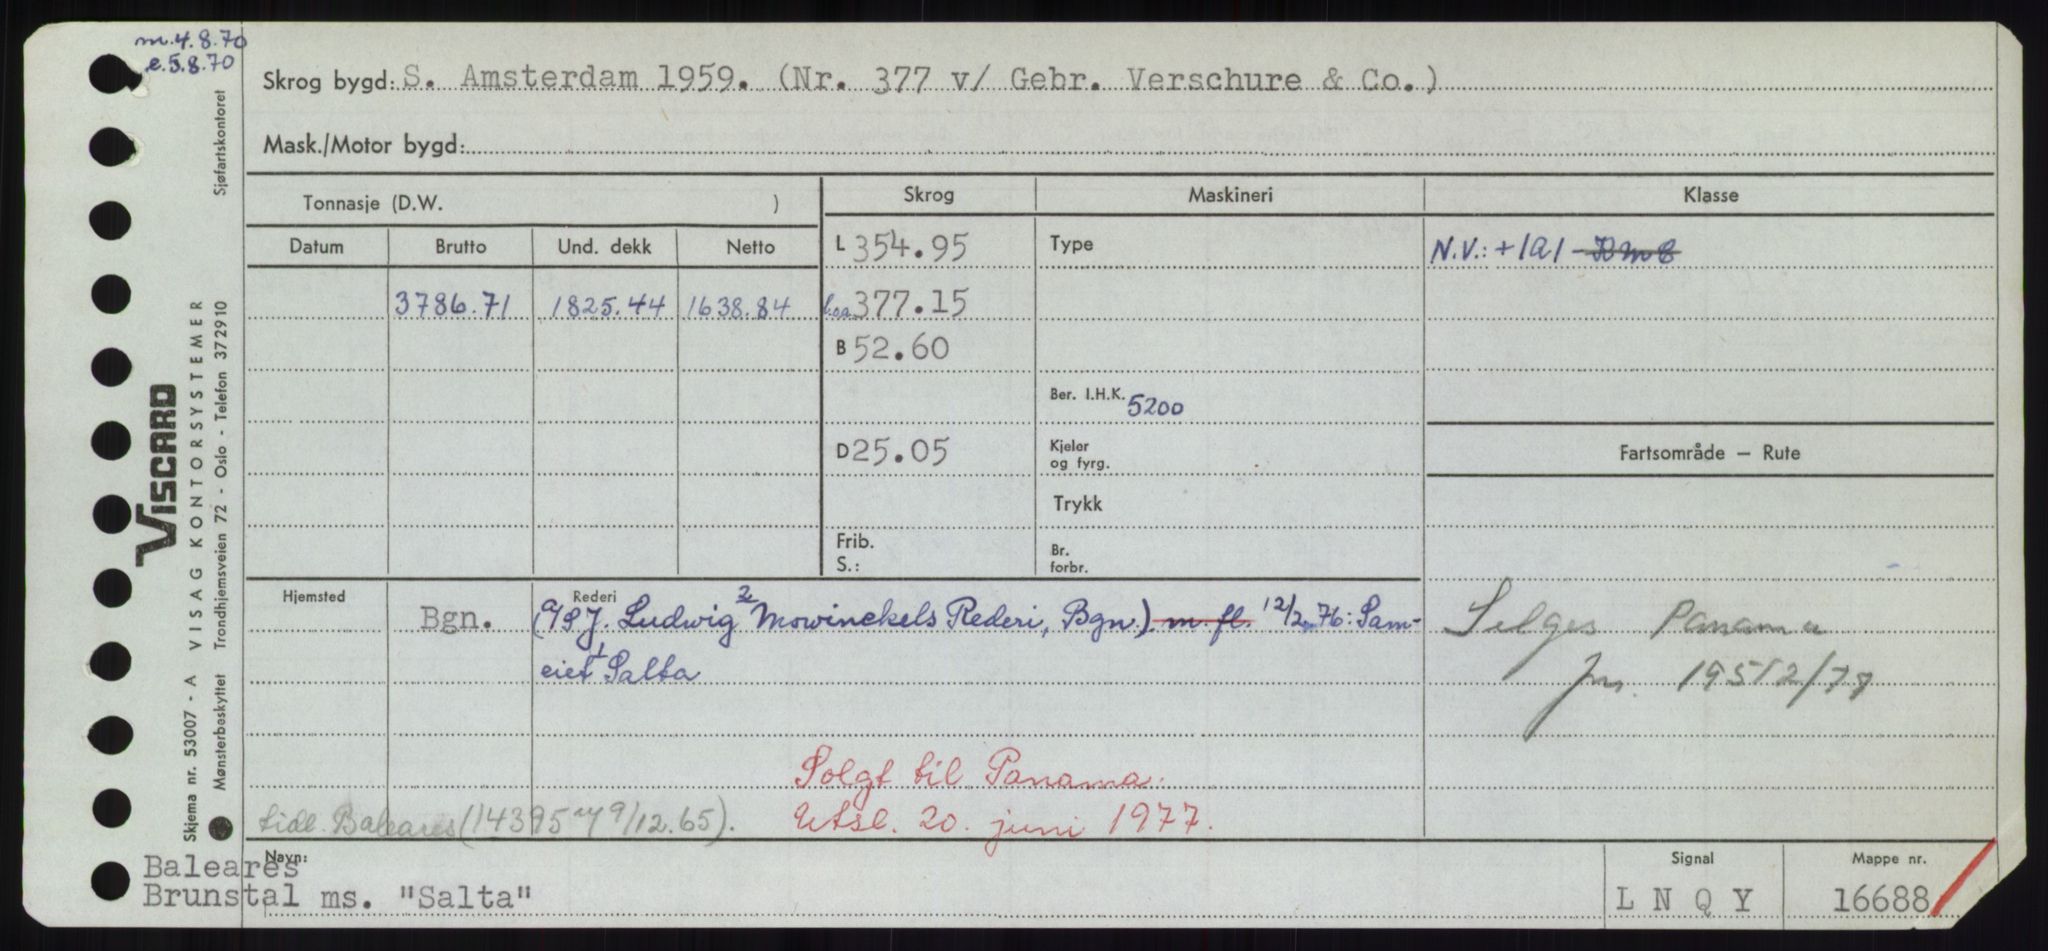 m.4.8.70
e.5.8.70
Skrog bygd: S. Amsterdam 1959. (Nr. 377 v/ Gebr. Verschure & Co.)
Mask./Motor bygd:
Tonnasje (D.W. )
Skrog
Maskineri
Klasse
Datum Brutto Und. dekk Netto
L 354.95
Type
N.V.: +1A1
3786.71 1825.44 1638.84
l.oa. 377.15
B 52.60
Ber. I.H.K. 5200
D 25.05
Kjeler
og fyrg.
Fartsområde — Rute
Trykk
Frib.
S.:
Br.
forbr.
Hjemsted
Bgn.
Rederi
(A/S J. Ludwig 2 Mowinckels Rederi, Bgn.) m. fl. 12/2.76: Sam-
eiet 1 Salta
Selges Panama
jnr. 1951 2/77
Solgt til Panama.
Utsl. 20. juni 1977.
tidl. Baleares (14395 9/12.65).
Navn:
Baleares
Brunstal ms. "Salta"
Signal
L N Q Y
Mappe nr.
16688
Sjøfartskontoret
VISCARD
VISAG KONTORSYSTEMER
Trondhjemsveien 72 - Oslo - Telefon 372910
Skjema nr. 53007 - A
Mønsterbeskyttet